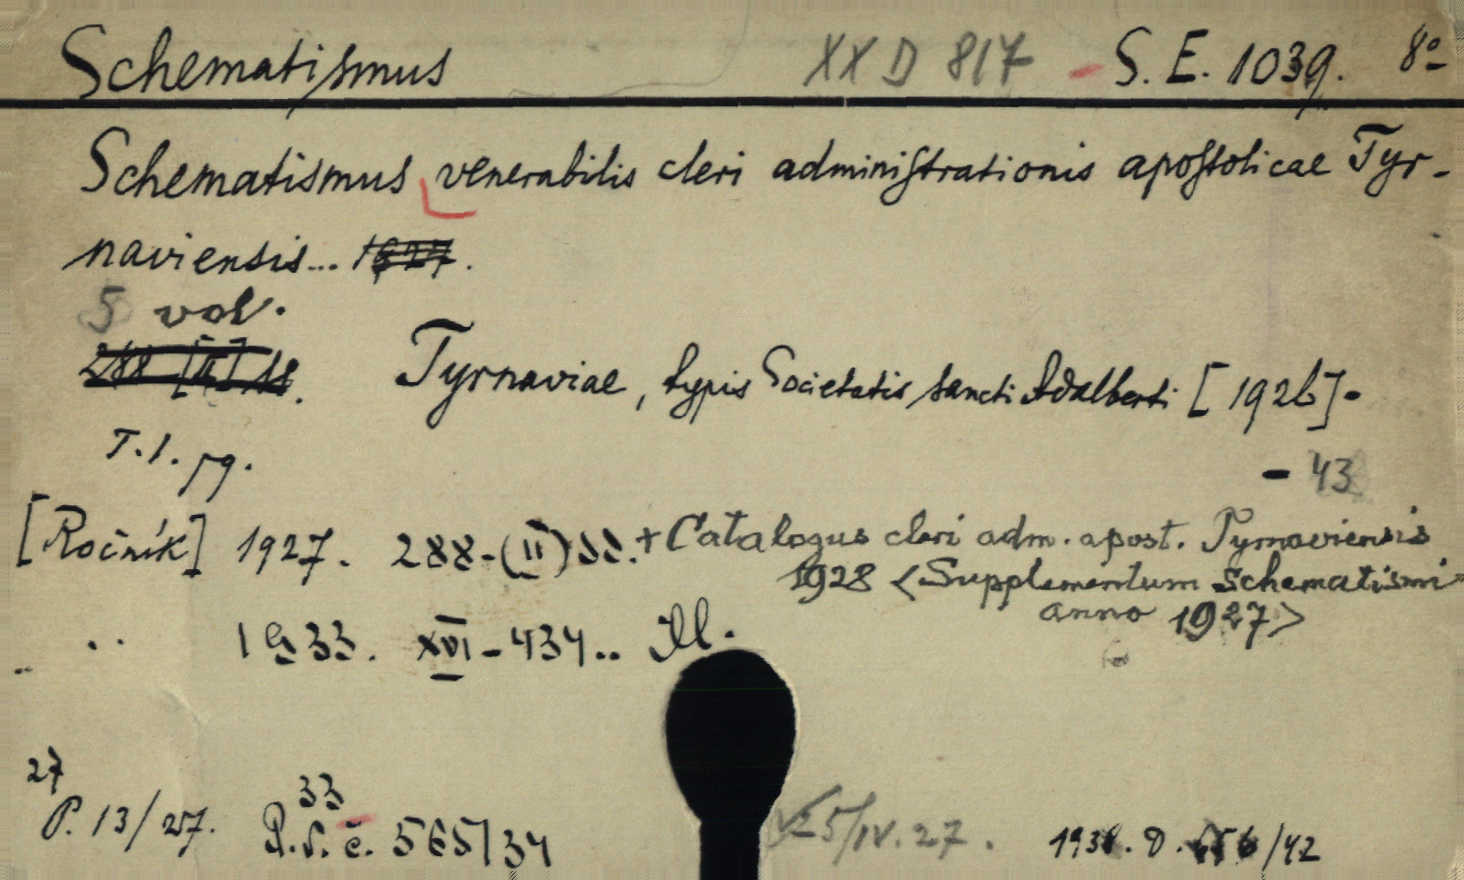 Schematismus XX D 817 - S. E. 1039. 8º
Schematismus venerabilis cleri administrationis apostolicae Tyr-
naviensis... 1927.
5 vol.
288 [II] ss. Tyrnaviae, typis Societatis sancti Adalberti [1926].
- 43
T. 1. pg.
[Ročník] 1927. 288-(II) ss. + Catalogus cleri adm. apost. Tyrnaviensis
1928 <Supplementum schematismi
anno 1927>
.. 1933. XVI-434.. Il.
27 33
P. 13/27. P.S.č. 565/34 25/IV.27. D. /42